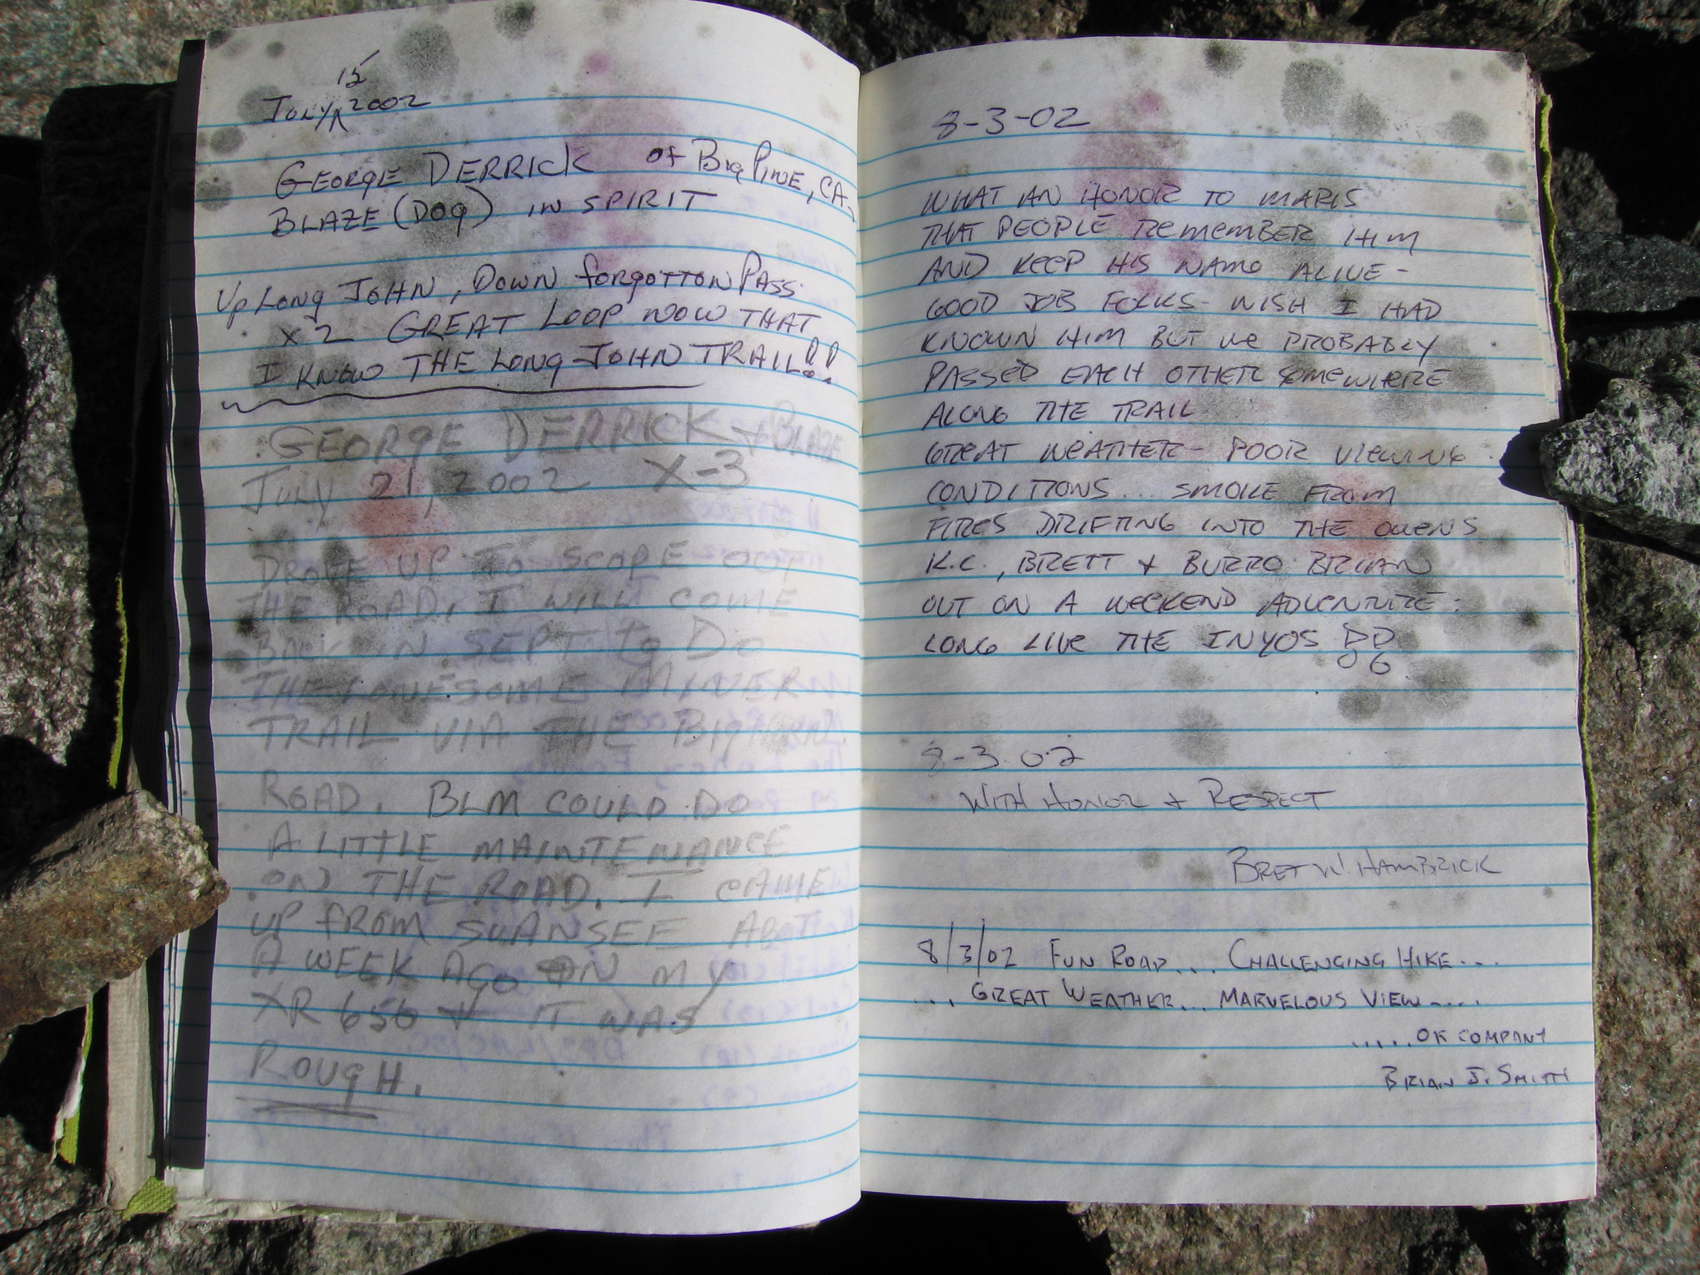 15
July ^ 2002
GEORGE DERRICK of Big Pine, CA.
BLAZE (DOg) IN SPIRIT
Up Long JOHN, DOWN forgotton PASS.
X2 GREAT LOOP NOW THAT
I KNOW THE Long JOHN TRAIL!!
GEORGE DERRICK + BLAZE
July 21, 2002 X-3
DROVE UP TO SCOPE OUT
THE ROAD. I WILL COME
BACK IN SEPT to DO
THE LONESOME MINER
TRAIL VIA THE BigHORN
ROAD. BLM COULD DO
A LITTLE MAINTENANCE
ON THE ROAD. I CAME
UP FROM SWANSEE ABOUT
A WEEK AGO ON MY
XR 650 + IT WAS
ROUgH.
8-3-02
WHAT AN HONOR TO MARIS
THAT PEOPLE REMEMBER HIM
AND KEEP HIS NAME ALIVE -
GOOD JOB FOLKS - WISH I HAD
KNOWN HIM BUT WE PROBABLY
PASSED EACH OTHER SOMEWHERE
ALONG THE TRAIL
GREAT WEATHER - POOR VIEWING
CONDITIONS... SMOKE FROM
FIRES DRIFTING INTO THE OWENS
K.C., BRETT + BURRO BRIAN
OUT ON A WEEKEND ADVENTURE:
LONG LIVE THE INYOS !!
8-3-02
WITH HONOR + RESPECT
BRET W. HAMBRICK
8/3/02 FUN ROAD.... CHALLENGING HIKE....
.... GREAT WEATHER... MARVELOUS VIEW.....
.....OK COMPANY
BRIAN J. SMITH